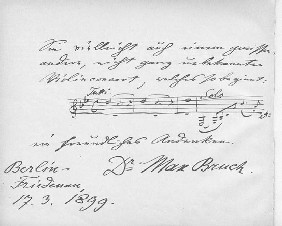 Sie vielleicht auch einem gewissen
andern, nicht ganz unbekannten
Violinconcert, welches so beginnt:
Tutti Solo
ein freundliches Andenken.
Berlin- Dr Max Bruch.
Friedenau,
17. 3. 1899.